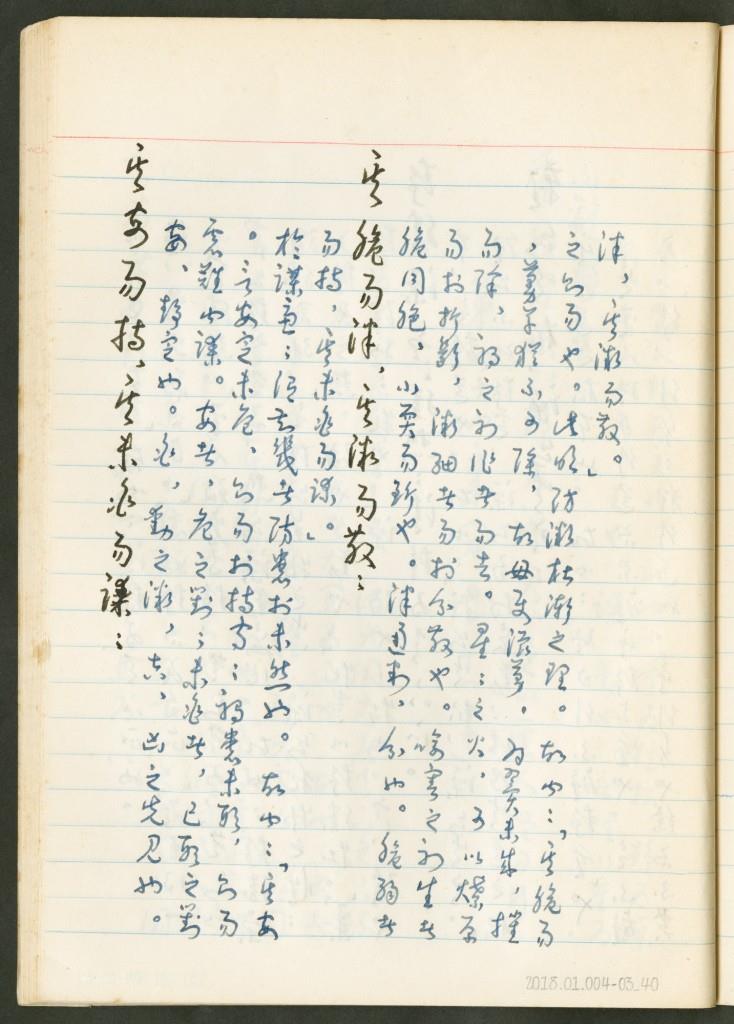 其安易持、其未兆易謀：
安、靜定也。兆，動之微，吉、凶之先見也。
慮難曰謀。安者，危之對；未兆者，已形之對
。言安定未危，則易於持守；禍患未形，則易
於謀慮；須知幾者防患於未然也。故曰：「其安
易持，其未兆易謀。」
其脆易泮，其微易散：
脆同脃，小耎易斷也。泮通判，分也。脆弱者
易於折斷，微細者易於分散也。喻害之初生者
而除，禍之初作者易去。星：之火，可以燎原
，蔓草猶不可除，故毋使滋蔓。羽翼未成，摧
之則易也。此明防微杜漸之理。故曰：「其脆易
泮，其微易散。」
2018.01.004-03_40